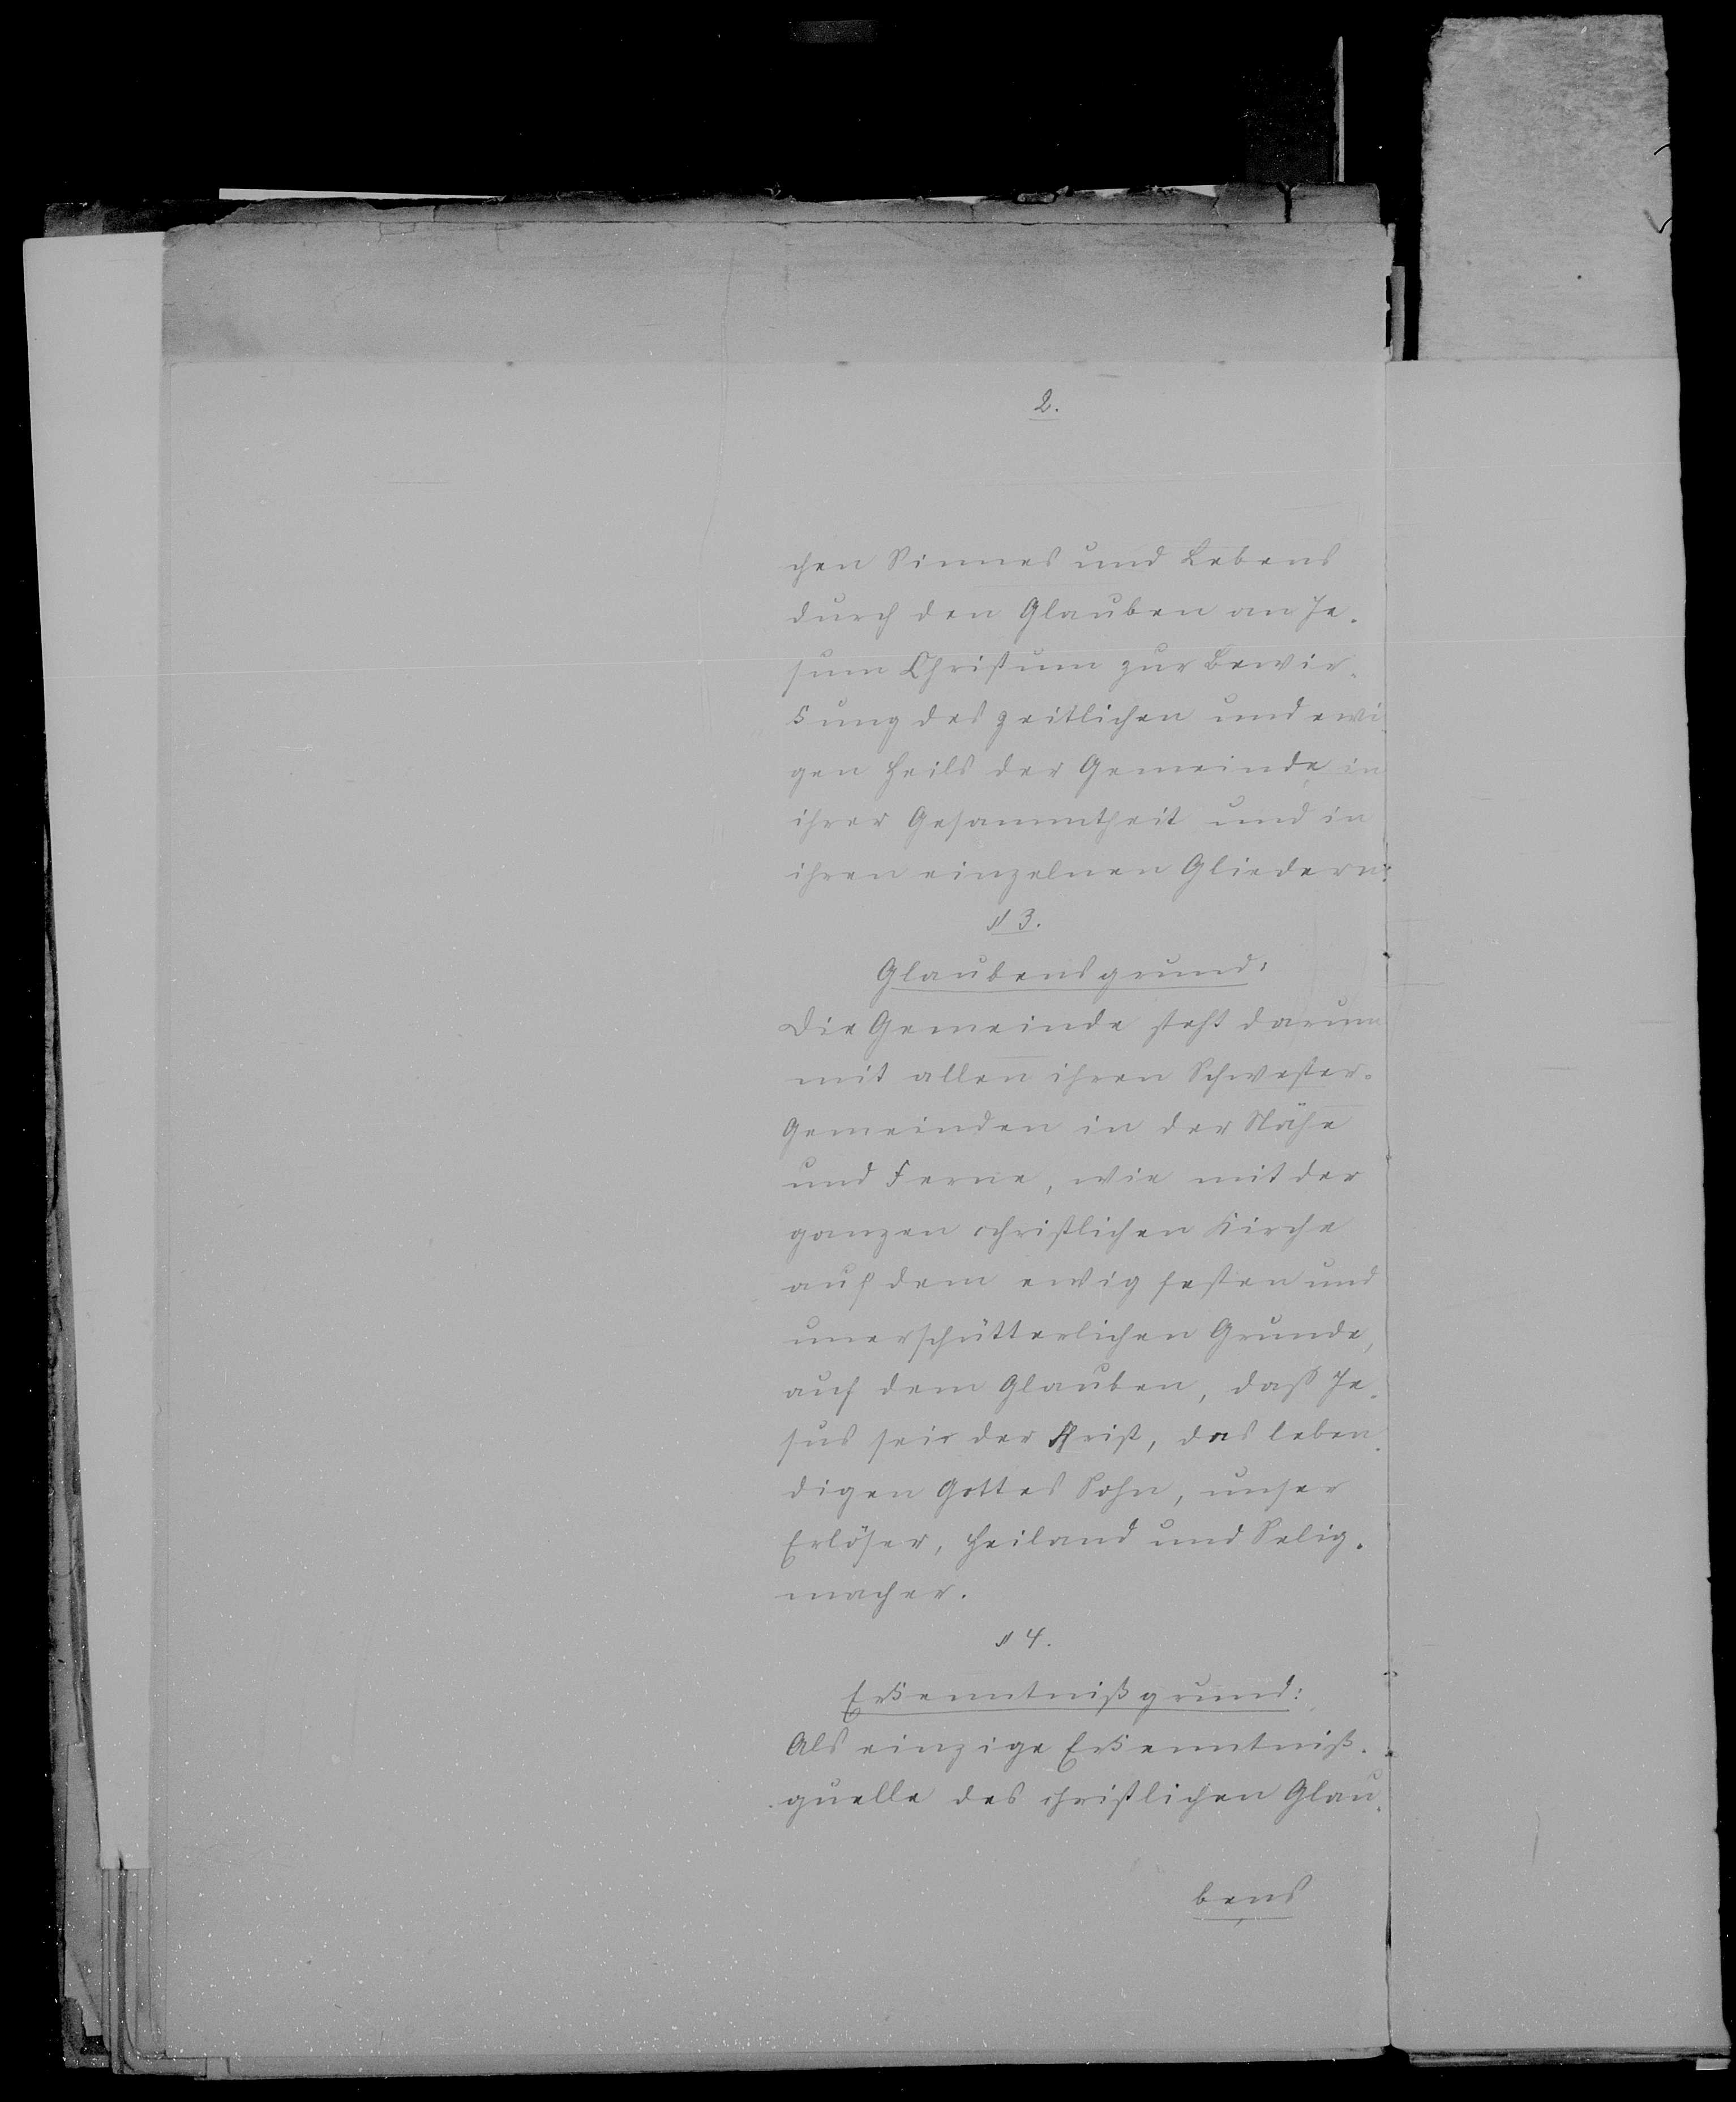 2.
chen Sinnes und Lebens
durch den Glauben an Je-
sum Christum zur Bewir-
kung des zeitlichen und ewi
gen Heils der Gemeinde in
ihrer Gesammtheit und in
ihren einzelnen Gliedern.
§ 3.
Glaubensgrund:
Die Gemeinde steht darum
mit allen ihren Schwester-
Gemeinden in der Nähe
und Ferne, wie mit der
ganzen christlichen Kirche
auf dem ewig festen und
unerschütterlichen Grunde,
auf dem Glauben, daß Je-
sus sei der Christ, des leben-
digen Gottes Sohn, unser
Erlöser, Heiland und Selig-
macher.
§ 4.
Erkenntnißgrund:
Als einzige Erkenntniß-
quelle des christlichen Glau-
bens